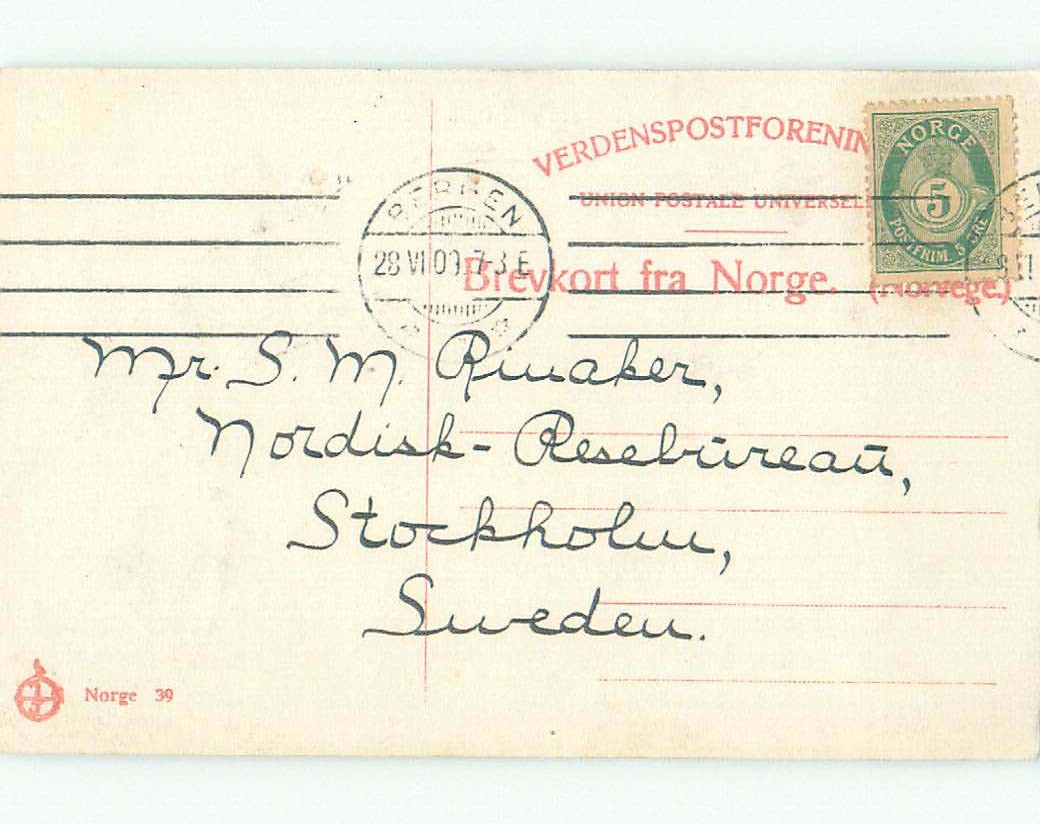 VERDENSPOSTFORENIN
UNION POSTALE UNIVERSEL
Brevkort fra Norge. (Norvege.)
NORGE
5
POSTFRIM. 5 ØRE
BERGEN
28 VI 09. 7-8 E
Mr. S. M. Rinaker,
Nordisk- Resebūreaū,
Stockholm,
Sweden.
Norge 39